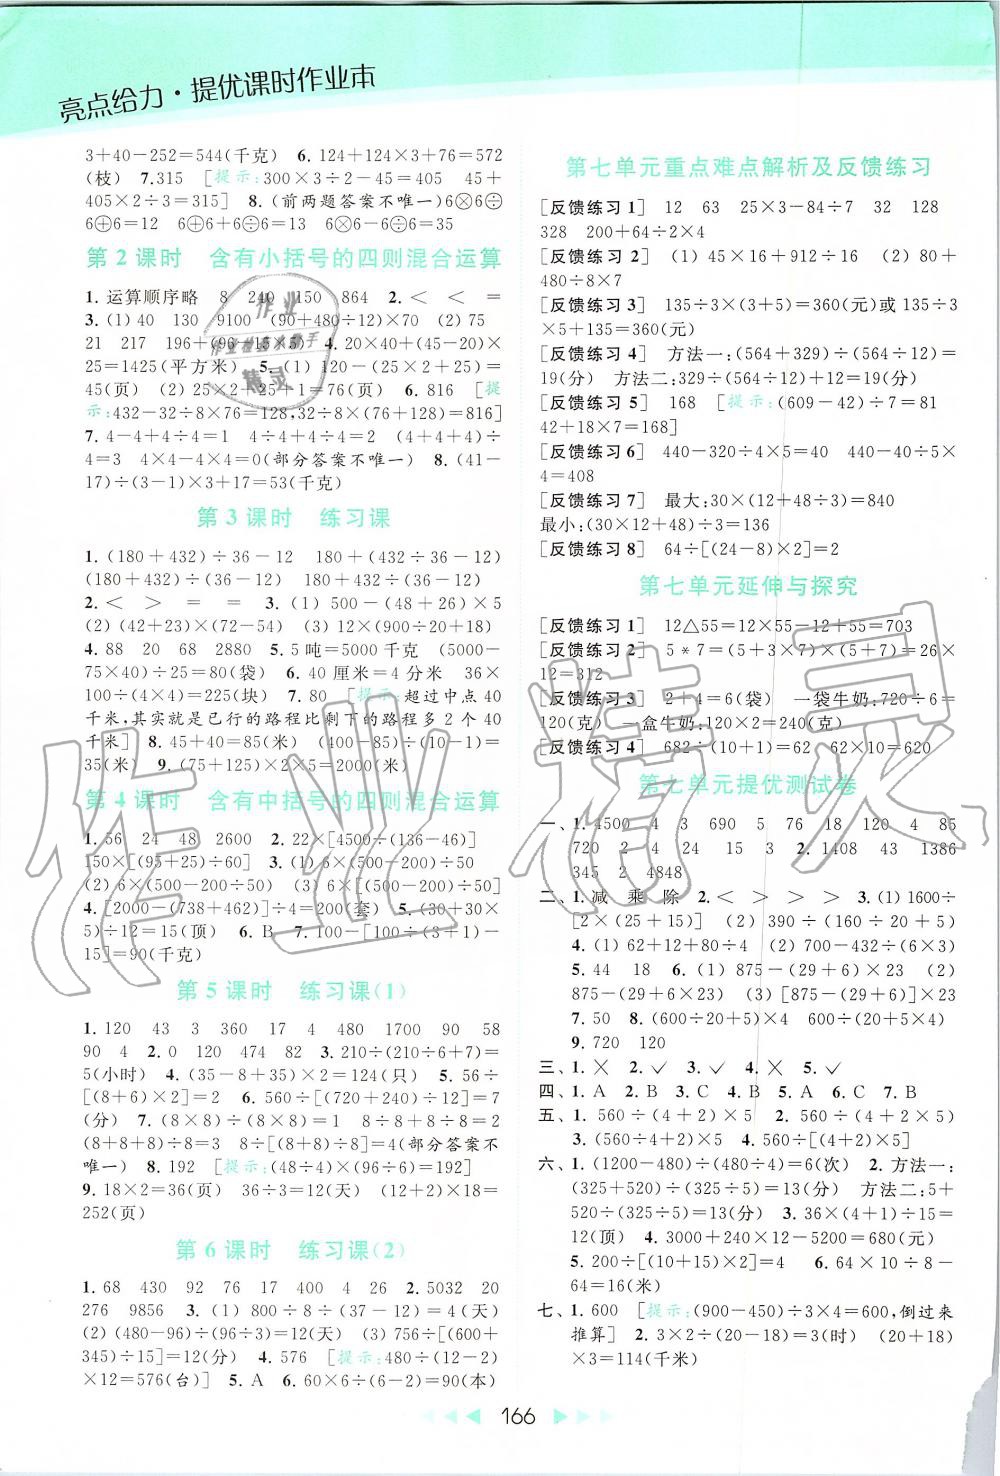 亮点给力·提优课时作业本
3+40-252=544(千克) 6. 124+124×3+76=572
(枝) 7.315 [提示:300×3÷2-45=405 45+
405×2÷3=315] 8. (前两题答案不唯一)6⊗6⊕
6⊕6=12 6⊕6+6⊕6=13 6×6-6÷6=35
第2课时 含有小括号的四则混合运算
1. 运算顺序略 8 240 150 864 2.< < =
3. (1) 40 130 9100 (90+480÷12)×70 (2) 75
21 217 196+(96-15×5) 4. 20×20+(45-20)×
25=1425(平方米) 5. (1) 120-(25×2+25)=
45(页) (2) 25×2+25+1=76(页) 6. 816 [提
示:432-32÷8×76=128,32÷8×(76+128)=816]
7. 4-4+4÷4=1 4÷4+4÷4=2 (4+4+4)÷
4=3 4×4-4×4=0(部分答案不唯一) 8. (41-
17)÷(3-1)×3+17=53(千克)
第3课时 练习课
1. (180+432)÷36-12 180+432÷(36-12)
(180+432)÷(36-12) 180+(432÷36-12)
2.< > = = 3. (1) 500-(48+26)×5
(2) (42+23)×(72-54) (3) 12×(900-20+18)
4. 88 20 68 2880 5. 5吨=5000千克 (5000-
75×40)÷25=80(袋) 6. 40厘米=4分米 36×
100÷(4×4)=225(块) 7. 80 [提示:超过中点40
千米,其实就是已行的路程比剩下的路程多2个40
千米] 8. 45+40=85(米) (400-85)÷(10-1)=
35(米) 9. (75+125)×2×5=2000(米)
第4课时 含有中括号的四则混合运算
1. 56 24 48 2600 2. 22×[4500÷(136-46)]
150×[(95+25)÷60] 3. (1) 6×(500-200)÷50
(2) 6×(500-200÷50) (3) 6×[(500-200)÷50]
4. [2000-(738+462)]÷4=200(套) 5. (30+30×
5)÷12=15(顶) 6. B 7. 100-[100÷(3+1)-
15]=90(千克)
第5课时 练习课(1)
1. 120 43 3 360 17 4 480 1700 90 58
90 4 2. 0 120 474 82 3. 210÷(210÷6+7)=
5(小时) 4. (35-8+35)×2=124(只) 5. 56÷
[(8+6)×2]=2 6. 560÷[(720+240)÷12]=7
(分) 7. (8×8)÷(8×8)=1 8÷8+8÷8=2
(8+8+8)÷8=3 8÷[(8+8)÷8]=4(部分答案不
唯一) 8. 192 [提示:(48÷4)×(96÷6)=192]
9. 18×2=36(页) 36÷3=12(天) (12+2)×18=
252(页)
第6课时 练习课(2)
1. 68 430 92 76 17 400 4 26 2. 5032 20
276 9856 3. (1) 800÷8÷(37-12)=4(天)
(2) (480-96)÷(96÷3)=12(天) (3) 756÷[(600+
345)÷15]=12(分) 4. 576 [提示:480÷(12-2)
×12=576(台)] 5. A 6. 60×6÷(6-2)=90(本)
第七单元重点难点解析及反馈练习
[反馈练习1] 12 63 25×3-84÷7 32 128
328 200+64÷2×4
[反馈练习2] (1) 45×16+912÷16 (2) 80+
480÷8×7
[反馈练习3] 135÷3×(3+5)=360(元)或135÷3
×5+135=360(元)
[反馈练习4] 方法一:(564+329)÷(564÷12)=
19(分) 方法二:329÷(564÷12)+12=19(分)
[反馈练习5] 168 [提示:(609-42)÷7=81
42+18×7=168]
[反馈练习6] 440-320÷4×5=40 440-40÷5×
4=408
[反馈练习7] 最大:30×(12+48÷3)=840
最小:(30×12+48)÷3=136
[反馈练习8] 64÷[(24-8)×2]=2
第七单元延伸与探究
[反馈练习1] 12△55=12×55-12+55=703
[反馈练习2] 5*7=(5+3×7)×(5+7)=26×
12=312
[反馈练习3] 2+4=6(袋) 一袋牛奶:720÷6=
120(克) 一盒牛奶:120×2=240(克)
[反馈练习4] 682÷(10+1)=62 62×10=620
第七单元提优测试卷
一、1. 4500 4 3 690 5 76 18 120 4 85
720 2 4 24 15 3 2. 1408 43 1386
345 2 4848
二、1. 减 乘 除 2.< > > > 3. (1) 1600÷
[2×(25+15)] (2) 390÷(160÷20+5)
4. (1) 62+12+80=64 (2) 700-432÷(6×3)
5. 44 18 6. (1) 875-(29+6)×23 (2)
875-(29+6×23) (3) [875-(29+6)]×23
7. 50 8. (600÷20+5)×4 600÷20+5×4
9. 720 120
三、1. × 2. ✓ 3. ✓ 4. × 5. ✓
四、1. A 2. B 3. C 4. B 5. A 6. C 7. B
五、1. 560÷(4+2)×5 2. 560÷(4+2×5)
3. (560÷4+2)×5 4. 560÷[(4+2)×5]
六、1. (1200-480)÷(480÷4)=6(次) 2. 方法一:
(325+520)÷(325÷5)=13(分) 方法二:5+
520÷(325÷5)=13(分) 3. (12+9×4)÷4=
12(顶) 4. 3000+240×12-5200=680(元)
5. 200÷[(10+15)×2]=4 6. 20÷2×8-
64=16(米)
七、1. 600 [提示:(900-450)÷3×4=600,倒过来
推算] 2. 3×2÷(20-18)=3(时) (20+18)
×3=114(千米)
166